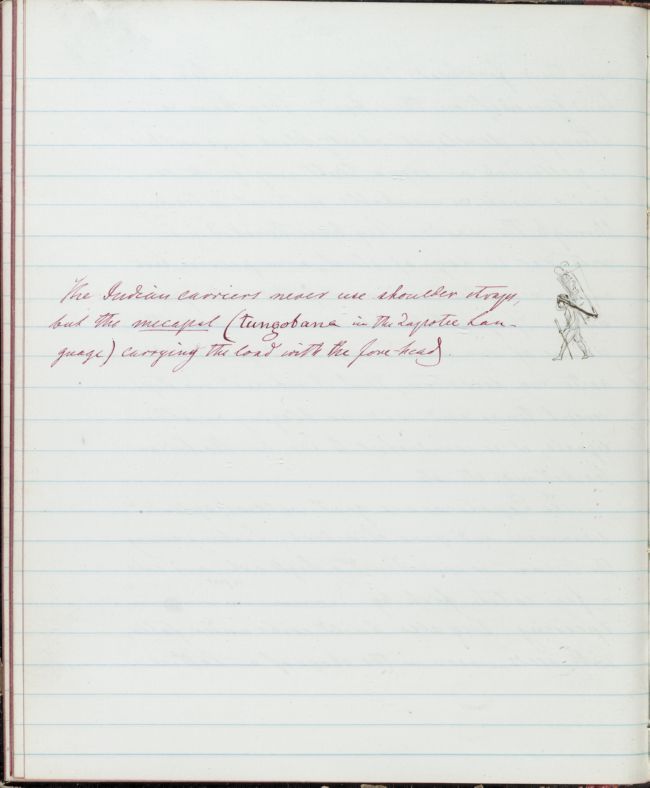 The Indian carriers never use shoulder straps,
but the mecapal (tungobana in the Zapotec Lan-
guage) carrying the load with the fore-head.